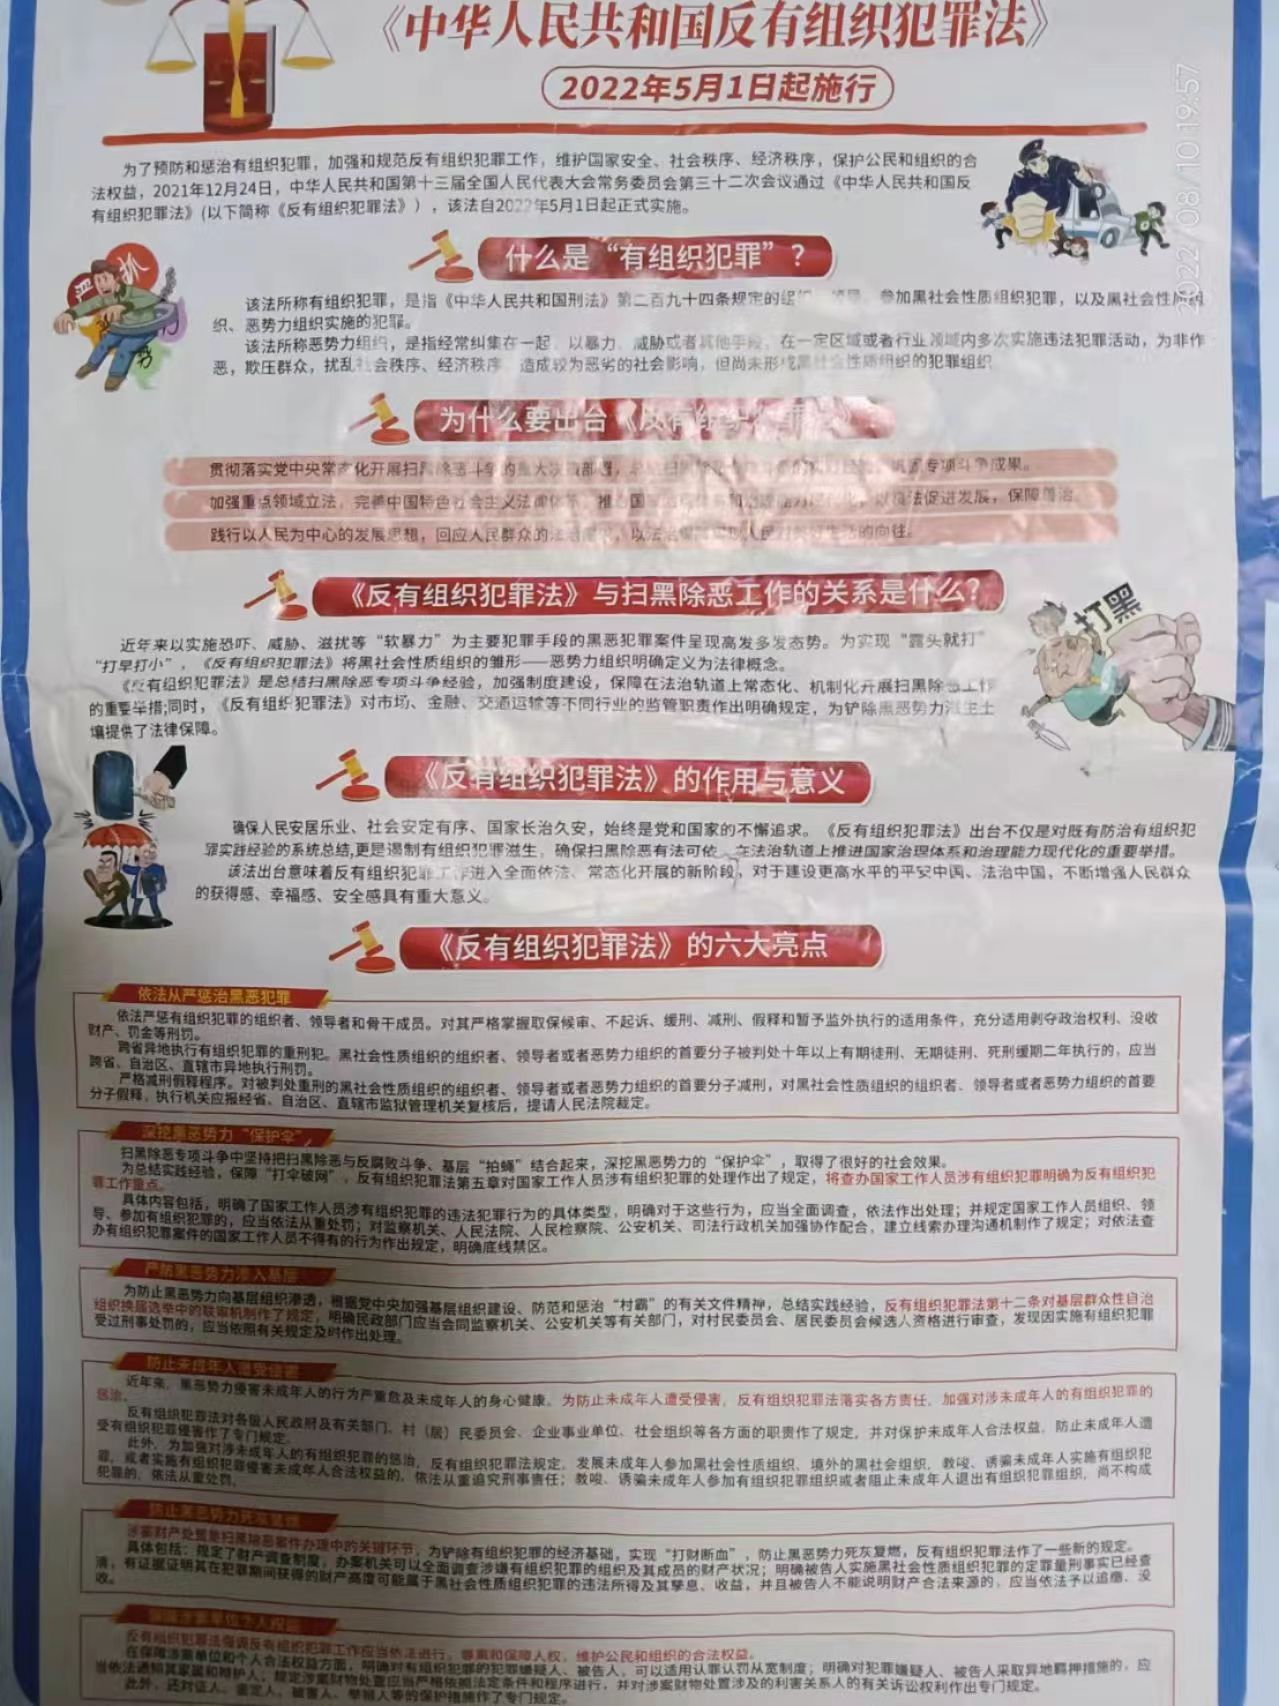 《中华人民共和国反有组织犯罪法》
2022年5月1日起施行
2022/08/10 19:57
为了预防和惩治有组织犯罪，加强和规范反有组织犯罪工作，维护国家安全、社会秩序、经济秩序，保护公民和组织的合
法权益，2021年12月24日，中华人民共和国第十三届全国人民代表大会常务委员会第三十二次会议通过《中华人民共和国反
有组织犯罪法》(以下简称《反有组织犯罪法》），该法自2022年5月1日起正式实施。
严 抓
什么是“有组织犯罪”？
该法所称有组织犯罪，是指《中华人民共和国刑法》第二百九十四条规定的组织、领导、参加黑社会性质组织犯罪，以及黑社会性质组
织、恶势力组织实施的犯罪。
该法所称恶势力组织，是指经常纠集在一起，以暴力、威胁或者其他手段，在一定区域或者行业领域内多次实施违法犯罪活动，为非作
恶，欺压群众，扰乱社会秩序、经济秩序，造成较为恶劣的社会影响，但尚未形成黑社会性质组织的犯罪组织
为什么要出台《反有组织犯罪法》
贯彻落实党中央常态化开展扫黑除恶斗争的重大决策部署，巩固专项斗争成果。
加强重点领域立法，完善中国特色社会主义法律体系，推进国家治理体系和治理能力现代化，以良法促进发展，保障善治。
践行以人民为中心的发展思想，回应人民群众的法治需求，以法治保障实现人民对美好生活的向往。
《反有组织犯罪法》与扫黑除恶工作的关系是什么？
打黑
近年来以实施恐吓、威胁、滋扰等“软暴力”为主要犯罪手段的黑恶犯罪案件呈现高发多发态势。为实现“露头就打”
“打早打小”，《反有组织犯罪法》将黑社会性质组织的雏形——恶势力组织明确定义为法律概念。
《反有组织犯罪法》是总结扫黑除恶专项斗争经验，加强制度建设，保障在法治轨道上常态化、机制化开展扫黑除恶工作
的重要举措;同时，《反有组织犯罪法》对市场、金融、交通运输等不同行业的监管职责作出明确规定，为铲除黑恶势力滋生土
壤提供了法律保障。
《反有组织犯罪法》的作用与意义
确保人民安居乐业、社会安定有序、国家长治久安，始终是党和国家的不懈追求。《反有组织犯罪法》出台不仅是对既有防治有组织犯
罪实践经验的系统总结,更是遏制有组织犯罪滋生，确保扫黑除恶有法可依，在法治轨道上推进国家治理体系和治理能力现代化的重要举措。
该法出台意味着反有组织犯罪工作进入全面依法、常态化开展的新阶段，对于建设更高水平的平安中国、法治中国，不断增强人民群众
的获得感、幸福感、安全感具有重大意义。
《反有组织犯罪法》的六大亮点
依法从严惩治黑恶犯罪
依法严惩有组织犯罪的组织者、领导者和骨干成员。对其严格掌握取保候审、不起诉、缓刑、减刑、假释和暂予监外执行的适用条件，充分适用剥夺政治权利、没收
财产、罚金等刑罚。
跨省异地执行有组织犯罪的重刑犯。黑社会性质组织的组织者、领导者或者恶势力组织的首要分子被判处十年以上有期徒刑、无期徒刑、死刑缓期二年执行的，应当
跨省、自治区、直辖市异地执行刑罚。
严格减刑假释程序。对被判处重刑的黑社会性质组织的组织者、领导者或者恶势力组织的首要分子减刑，对黑社会性质组织的组织者、领导者或者恶势力组织的首要
分子假释，执行机关应报经省、自治区、直辖市监狱管理机关复核后，提请人民法院裁定。
深挖黑恶势力“保护伞”
扫黑除恶专项斗争中坚持把扫黑除恶与反腐败斗争、基层“拍蝇”结合起来，深挖黑恶势力的“保护伞”，取得了很好的社会效果。
为总结实践经验，保障“打伞破网”，反有组织犯罪法第五章对国家工作人员涉有组织犯罪的处理作出了规定，将查办国家工作人员涉有组织犯罪明确为反有组织犯
罪工作重点。
具体内容包括，明确了国家工作人员涉有组织犯罪的违法犯罪行为的具体类型，明确对于这些行为，应当全面调查，依法作出处理；并规定国家工作人员组织、领
导、参加有组织犯罪的，应当依法从重处罚；对监察机关、人民法院、人民检察院、公安机关、司法行政机关加强协作配合，建立线索办理沟通机制作了规定；对依法查
办有组织犯罪案件的国家工作人员不得有的行为作出规定，明确底线禁区。
严防黑恶势力渗入基层
为防止黑恶势力向基层组织渗透，根据党中央加强基层组织建设、防范和惩治“村霸”的有关文件精神，总结实践经验，反有组织犯罪法第十二条对基层群众性自治
组织换届选举中的联审机制作了规定，明确民政部门应当会同监察机关、公安机关等有关部门，对村民委员会、居民委员会候选人资格进行审查，发现因实施有组织犯罪
受过刑事处罚的，应当依照有关规定及时作出处理。
防止未成年人遭受侵害
近年来，黑恶势力侵害未成年人的行为严重危及未成年人的身心健康。为防止未成年人遭受侵害，反有组织犯罪法落实各方责任，加强对涉未成年人的有组织犯罪的
惩治。
反有组织犯罪法对各级人民政府及有关部门、村（居）民委员会、企业事业单位、社会组织等各方面的职责作了规定，并对保护未成年人合法权益，防止未成年人遭
受有组织犯罪侵害作了专门规定。
此外，为加强对涉未成年人的有组织犯罪的惩治，反有组织犯罪法规定，发展未成年人参加黑社会性质组织、境外的黑社会组织，教唆、诱骗未成年人实施有组织犯
罪，或者实施有组织犯罪侵害未成年人合法权益的，依法从重追究刑事责任；教唆、诱骗未成年人参加有组织犯罪组织或者阻止未成年人退出有组织犯罪组织，尚不构成
犯罪的，依法从重处罚。
防止黑恶势力死灰复燃
涉案财产处置是扫黑除恶案件办理中的关键环节，为铲除有组织犯罪的经济基础，实现“打财断血”，防止黑恶势力死灰复燃，反有组织犯罪法作了一些新的规定。
具体包括：规定了财产调查制度，办案机关可以全面调查涉嫌有组织犯罪的组织及其成员的财产状况；明确被告人实施黑社会性质组织犯罪的定罪量刑事实已经查
清，有证据证明其在犯罪期间获得的财产高度可能属于黑社会性质组织犯罪的违法所得及其孳息、收益，并且被告人不能说明财产合法来源的，应当依法予以追缴、没
收。
保障涉案单位个人权益
反有组织犯罪法强调反有组织犯罪工作应当依法进行，尊重和保障人权，维护公民和组织的合法权益。
在保障涉案单位和个人合法权益方面，明确对有组织犯罪的犯罪嫌疑人、被告人，可以适用认罪认罚从宽制度；明确对犯罪嫌疑人、被告人采取异地羁押措施的，应
当依法通知其家属和辩护人；规定涉案财物处置应当严格依照法定条件和程序进行，并对涉案财物处置涉及的利害关系人的有关诉讼权利作出专门规定。
此外，还对证人、鉴定人、被害人、举报人等的保护措施作了专门规定。